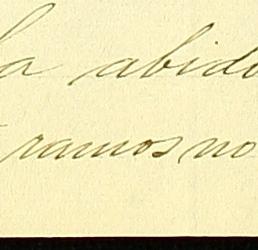 la abido
ramos no